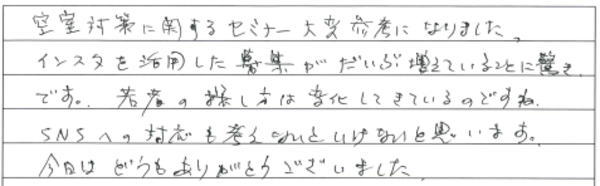 空室対策に関するセミナー大変参考になりました、
インスタを活用した募集がだいぶ増えていることに驚き
です。若者の探し方は変化してきているのですね。
SNSへの対応も考えないといけないと思います。
今日はどうもありがとうございました